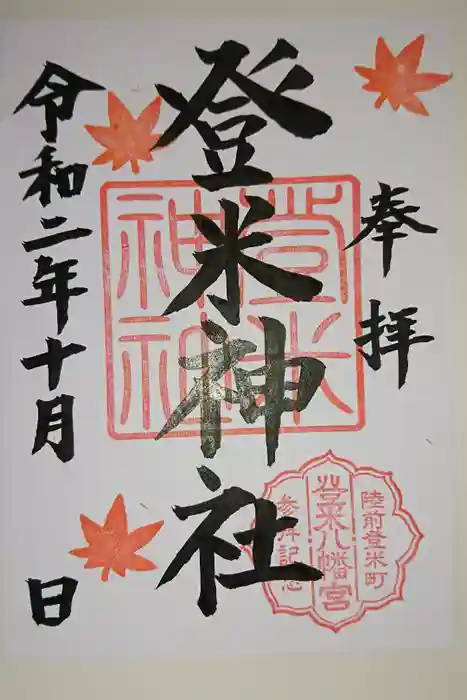 奉拝
登米神社
登米神社
陸前登米町
登米八幡宮
参拝記念
令和二年十月 日